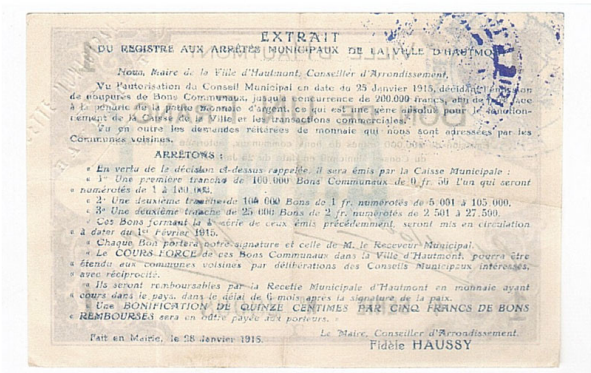 EXTRAIT
DU REGISTRE AUX ARRÊTÉS MUNICIPAUX DE LA VILLE D'HAUTMONT
Nous, Maire de la Ville d'Hautmont, Conseiller d'Arrondissement,
Vu l'autorisation du Conseil Municipal en date du 25 Janvier 1915, décidant l'émission
de coupures de Bons Communaux, jusqu'à concurrence de 200.000 francs, afin de
à la pénurie de la petite monnaie d'argent, ce qui est une gêne absolue pour le fonction-
nement de la Caisse de la Ville et les transactions commerciales.
Vu en outre les demandes réitérées de monnaie qui nous sont adressées par les
Communes voisines.
ARRÊTONS :
« En vertu de la décision ci-dessus rappelée, il sera émis par la Caisse Municipale :
« 1° Une première tranche de 160.000 Bons Communaux de 0 fr. 50 l'un qui seront
numérotés de 1 à 160.000.
« 2° Une deuxième tranche de 100 000 Bons de 1 fr. numérotés de 5 001 à 105 000.
« 3° Une deuxième tranche de 25 000 Bons de 2 fr. numérotés de 2 501 à 27.500.
« Ces Bons formant la série de ceux émis précédemment, seront mis en circulation
« à dater du 1er Février 1915.
« Chaque Bon portera notre signature et celle de M. le Receveur Municipal.
« Le COURS FORCÉ de ces Bons Communaux dans la Ville d'Hautmont, pourra être
« étendu aux communes voisines par délibérations des Conseils Municipaux intéressés,
« avec réciprocité.
« Ils seront remboursables par la Recette Municipale d'Hautmont en monnaie ayant
« cours dans le pays, dans le délai de 6 mois après la signature de la paix.
« Une BONIFICATION DE QUINZE CENTIMES PAR CINQ FRANCS DE BONS
« REMBOURSÉS sera en outre payée aux porteurs. »
Fait en Mairie, le 28 Janvier 1915.
Le Maire, Conseiller d'Arrondissement.
Fidèle HAUSSY